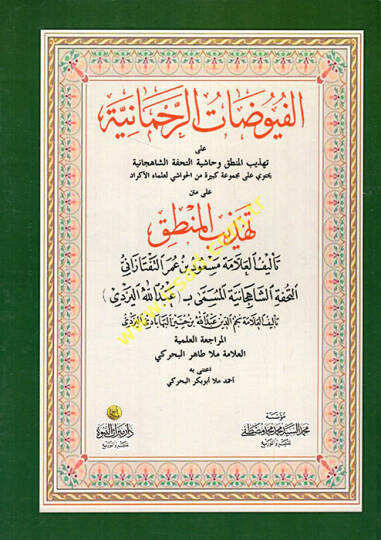 الفيوضات الرحمانية
على
تهذيب المنطق وحاشية التحفة الشاهجانية
يحتوي على مجموعة كبيرة من الحواشي لعلماء الأكراد
على متن
تهذيب المنطق
تأليف العلامة مسعود بن عمر التفتازاني
التحفة الشاهجانية المسمى بـ (عبد الله اليزدي)
تأليف العلامة نجم الدين عبد الله بن حسين اليزدي
المراجعة العلمية
العلامة ملا طاهر البحركي
اعتنى به
أحمد ملا أبوبكر البحركي
مؤسسة
محمد السيد محمد مصطفى
للنشر والتوزيع
دار ميراث النبوة
للنشر والتوزيع